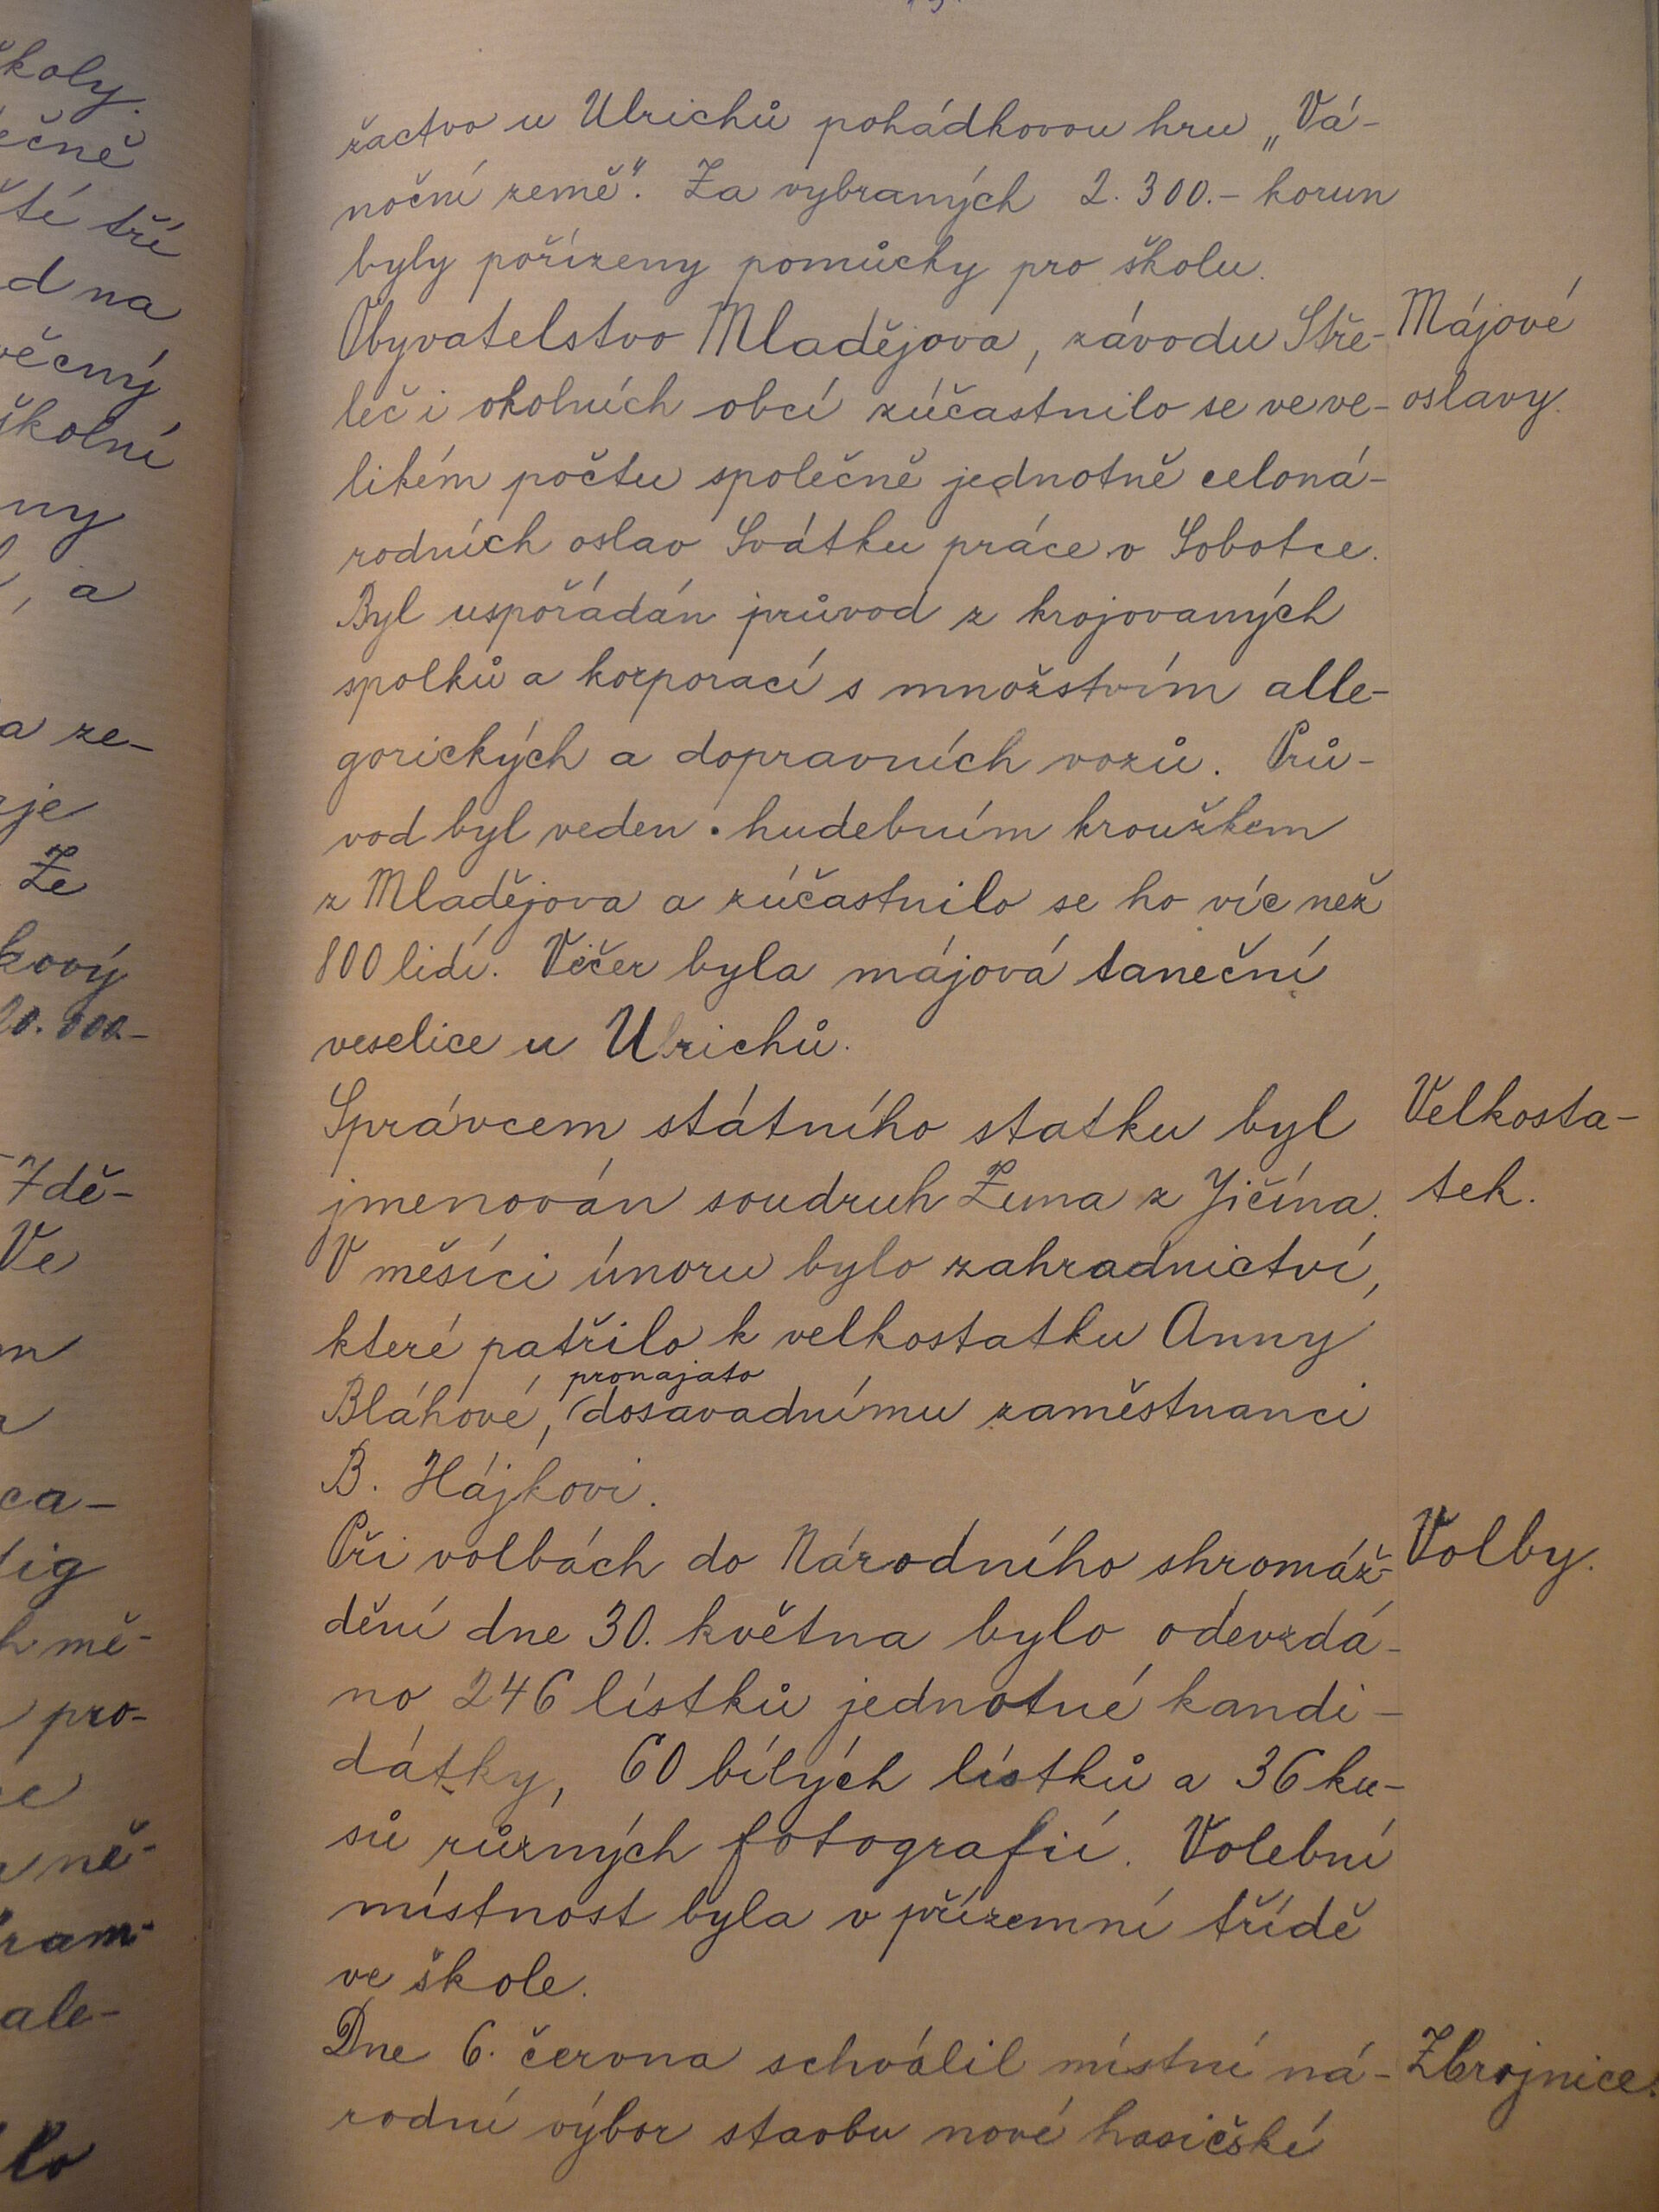 školy.
ečně
tí tří
d na
věcný
školní
ny
, a
a ze-
je
Ze
kový
20.000.-
7 dě-
Ve
m
a
ca-
dig
h mě-
pro-
ce
ně-
ram-
ale-
lo
žactvo u Ulrichů pohádkovou hru „Vá-
noční země". Za vybraných 2.300.- korun
byly pořízeny pomůcky pro školu.
Obyvatelstvo Mladějova, závodu Stře- Májové
leč i okolních obcí zúčastnilo se ve ve- oslavy.
likém počtu společně jednotně celoná-
rodních oslav Svátku práce v Sobotce.
Byl uspořádán průvod z krojovaných
spolků a korporací s množstvím alle-
gorických a dopravních vozů. Prů-
vod byl veden hudebním kroužkem
z Mladějova a zúčastnilo se ho víc než
800 lidí. Večer byla májová taneční
veselice u Ulrichů.
Správcem státního statku byl Velkosta-
jmenován soudruh Zuna z Jičína. tek.
V měsíci únoru bylo zahradnictví,
které patřilo k velkostatku Anny
pronajato
Bláhové, dosavadnímu zaměstnanci
B. Hájkovi.
Při volbách do Národního shromáž- Volby.
dění dne 30. května bylo odevzdá-
no 246 lístků jednotné kandi-
dátky, 60 bílých lístků a 36 ku-
sů různých fotografií. Volební
místnost byla v přízemní třídě
ve škole.
Dne 6. června schválil místní ná- Zbrojnice.
rodní výbor stavbu nové hasičské